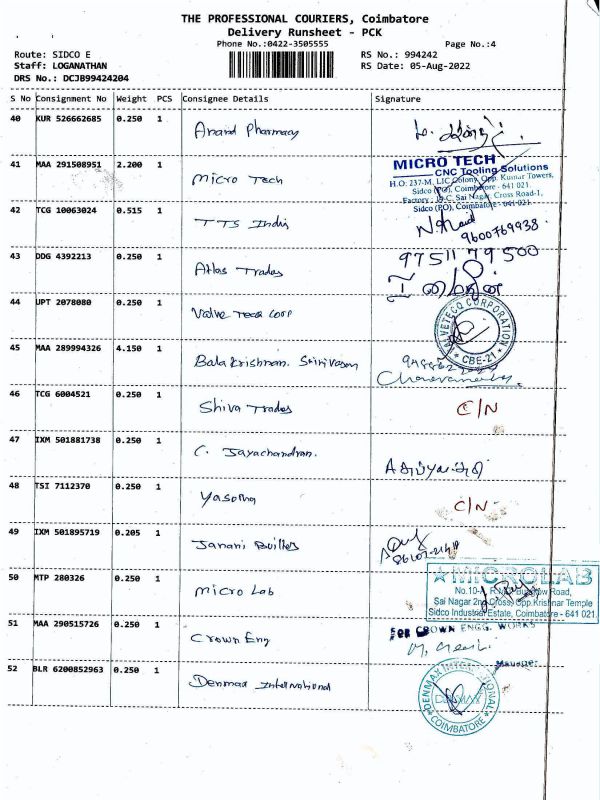 THE PROFESSIONAL COURIERS, Coimbatore
Delivery Runsheet - PCK
Phone No.:0422-3505555
Page No.:4
Route: SIDCO E
RS No.: 994242
Staff: LOGANATHAN
RS Date: 05-Aug-2022
DRS No.: DCJB99424204
S No Consignment No Weight PCS Consignee Details Signature
40 KUR 526662685 0.250 1 Anand Pharmacy
41 MAA 291508951 2.200 1 Micro Tech
MICRO TECH
CNC Tooling Solutions
H.O: 237-M, LIC Colony, Opp. Kumar Towers,
Sidco (PO), Coimbatore - 641 021.
Factory: 19-C, Sai Nagar, Cross Road-1,
Sidco (PO), Coimbatore - 641 021.
42 TCG 10063024 0.515 1 TTS India
9600769938
43 DDG 4392213 0.250 1 Atlas Trades
97511 79500
44 UPT 2078080 0.250 1 Valve Teca Corp
VALVETECO CORPORATION
CBE-21
45 MAA 289994326 4.150 1 Balakrishnan. Srinivasan
46 TCG 6004521 0.250 1 Shiva Trades C/N
47 IXM 501881738 0.250 1 C. Jayachandran.
48 TSI 7112370 0.250 1 Yasoma C/N
49 IXM 501895719 0.205 1 Janani Builtes
50 MTP 280326 0.250 1 Micro Lab
MICROLAB
Sai Nagar 2nd Cross, Opp.Krishnar Temple
Sidco Industrial Estate, Coimbatore - 641 021.
51 MAA 290515726 0.250 1 Crown Eng
FOR CROWN ENGG. WORKS
Manager
52 BLR 6200852963 0.250 1 Denmax International
DENMAX INTERNATIONAL
DENMAX
COIMBATORE